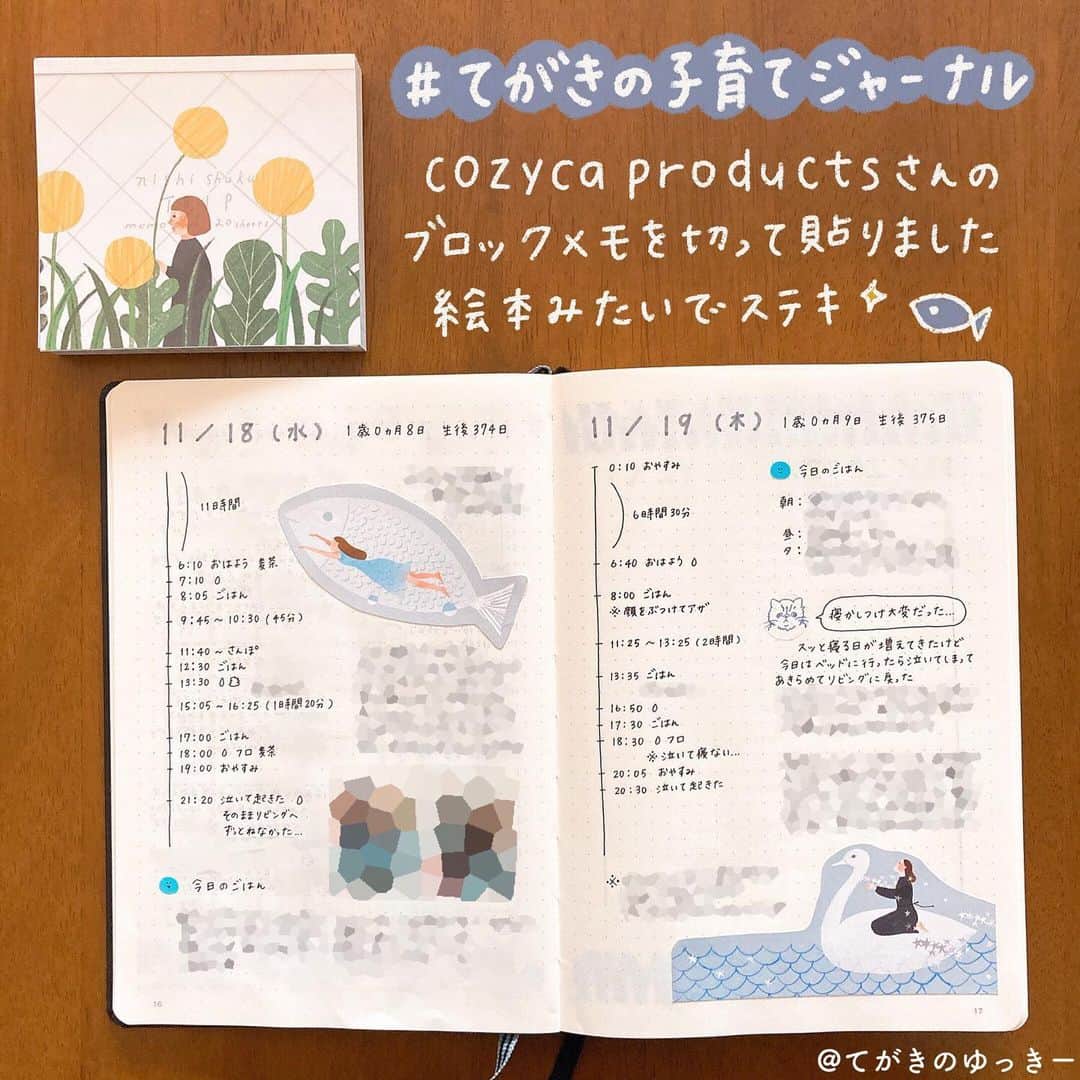 #てがきの子育てジャーナル
cozyca productsさんの
ブロックメモを切って貼りました
絵本みたいでステキ
nishi shuku
11/18(水) 1歳0ヵ月8日 生後374日
11時間
6:10 おはよう 麦茶
7:10 0
8:05 ごはん
9:45～10:30(45分)
11:40～さんぽ
12:30 ごはん
13:30 0
15:05～16:25(1時間20分)
17:00 ごはん
18:00 0 フロ 麦茶
19:00 おやすみ
21:20 泣いて起きた 0
そのままリビングへ
ずっとねなかった…
今日のごはん
16
11/19(木) 1歳0ヵ月9日 生後375日
0:10 おやすみ
6時間30分
6:40 おはよう 0
8:00 ごはん
※顔をぶつけてアザ
11:25～13:25(2時間)
13:35 ごはん
16:50 0
17:30 ごはん
18:30 0 フロ
※泣いて寝ない…
20:05 おやすみ
20:30 泣いて起きた
※
今日のごはん
朝:
昼:
夕:
寝かしつけ大変だった…
スッと寝る日が増えてきたけど
今日はベッドに行ったら泣いてしまって
あきらめてリビングに戻った
17
@てがきのゆっきー